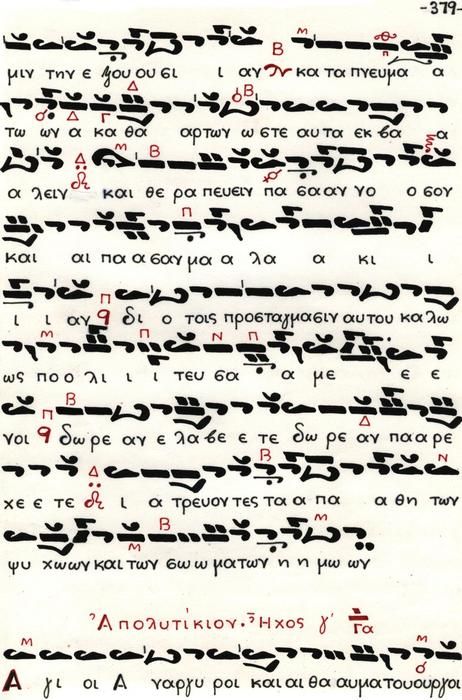 -379-
μιν την ε ξου ου σι ι αν κα τα πνευμα α
των α κα θα αρτων ω στε αυτα εκ βα α
α λειν και θε ρα πευειν πα σααν νο ο σον
και αι πα α σαν μα α λα α κι ι
ι ι αν δι ο τοις προσταγμασιν αυτου κα λω
ως πο ο λι ι ι τευ σα α με ε ε
νοι δω ρε αν ε λα βε ε τε δω ρε αν πα α ρε
χε ε τε ι α τρευον τες τα α πα α θη των
ψυ χωων και των σω ω ματων η η μω ων
Ἀπολυτίκιον. Ἦχος γ΄ Γα
Α γι οι Α ναργυ ροι και αι θα αυματουουργοι